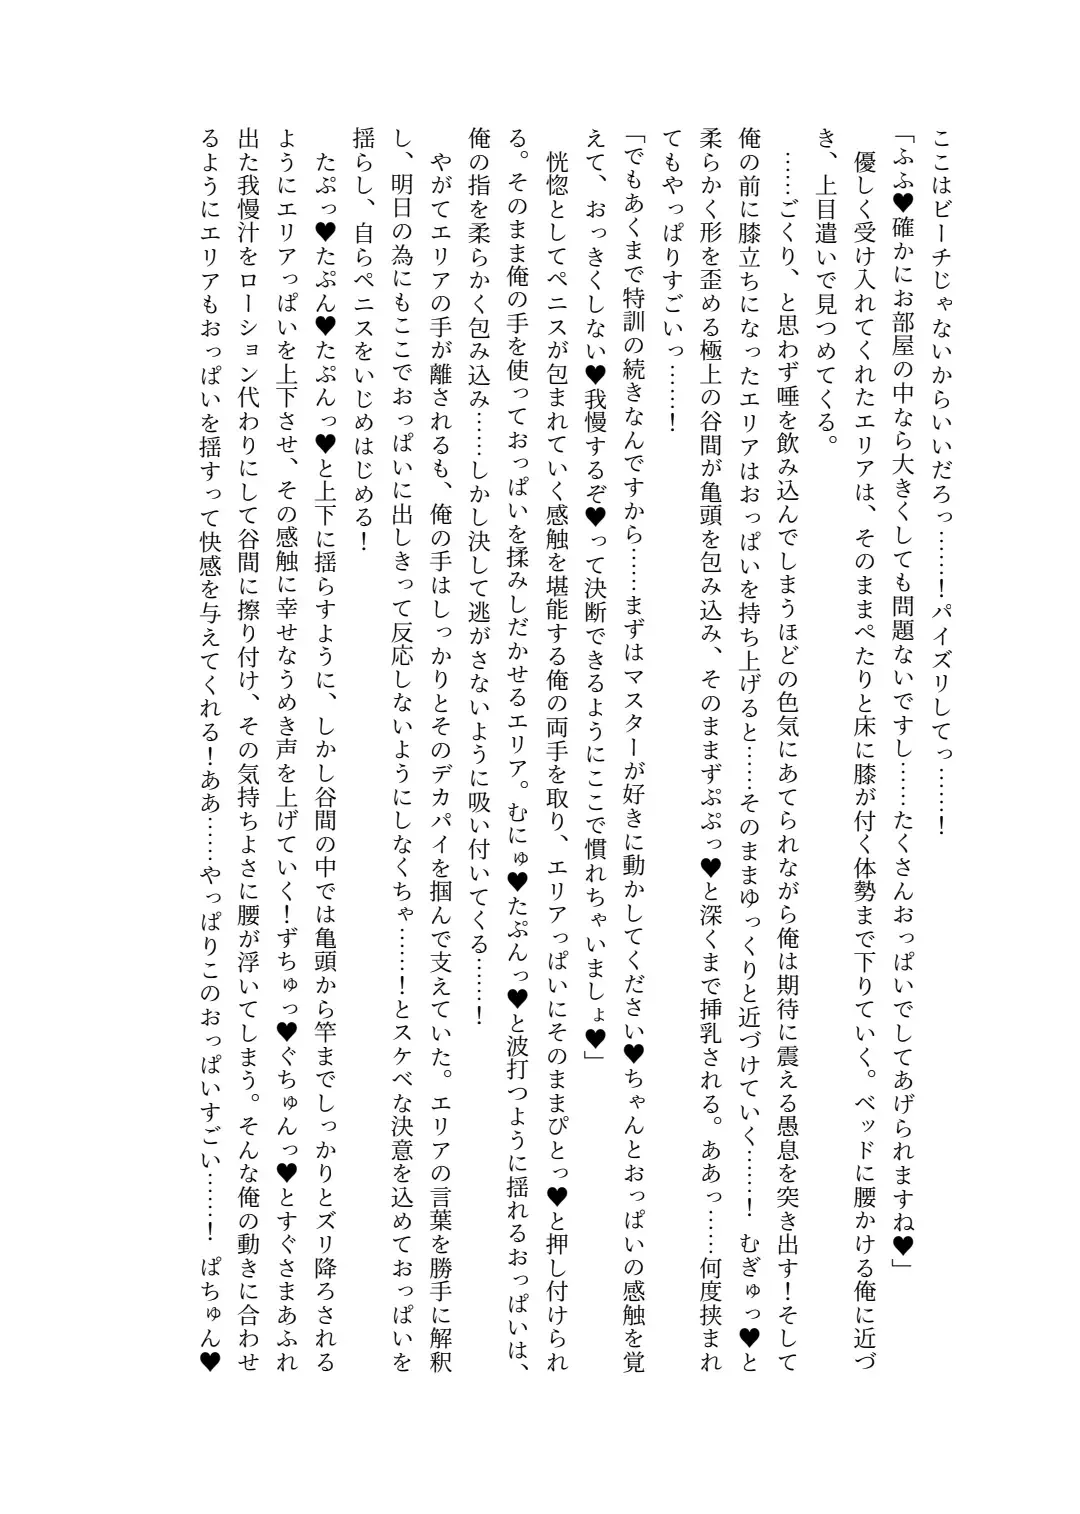 ここはビーチじゃないからいいだろっ……！パイズリしてっ……！
「ふふ♥確かにお部屋の中なら大きくしても問題ないですし……たくさんおっぱいでしてあげられますね♥」
優しく受け入れてくれたエリアは、そのままぺたりと床に膝が付く体勢まで下りていく。ベッドに腰かける俺に近づ
き、上目遣いで見つめてくる。
……ごくり、と思わず唾を飲み込んでしまうほどの色気にあてられながら俺は期待に震える愚息を突き出す！そして
俺の前に膝立ちになったエリアはおっぱいを持ち上げると……そのままゆっくりと近づけていく……！ むぎゅっ♥と
柔らかく形を歪める極上の谷間が亀頭を包み込み、そのままずぷぷっ♥と深くまで挿乳される。ああっ……何度挟まれ
てもやっぱりすごいっ……！
「でもあくまで特訓の続きなんですから……まずはマスターが好きに動かしてください♥ちゃんとおっぱいの感触を覚
えて、おっきくしない♥我慢するぞ♥って決断できるようにここで慣れちゃいましょ♥」
恍惚としてペニスが包まれていく感触を堪能する俺の両手を取り、エリアっぱいにそのままぴとっ♥と押し付けられ
る。そのまま俺の手を使っておっぱいを揉みしだかせるエリア。むにゅ♥たぷんっ♥と波打つように揺れるおっぱいは、
俺の指を柔らかく包み込み……しかし決して逃がさないように吸い付いてくる……！
やがてエリアの手が離されるも、俺の手はしっかりとそのデカパイを掴んで支えていた。エリアの言葉を勝手に解釈
し、明日の為にもここでおっぱいに出しきって反応しないようにしなくちゃ……！とスケベな決意を込めておっぱいを
揺らし、自らペニスをいじめはじめる！
たぷっ♥たぷん♥たぷんっ♥と上下に揺らすように、しかし谷間の中では亀頭から竿までしっかりとズリ降ろされる
ようにエリアっぱいを上下させ、その感触に幸せなうめき声を上げていく！ずちゅっ♥ぐちゅんっ♥とすぐさまあふれ
出た我慢汁をローション代わりにして谷間に擦り付け、その気持ちよさに腰が浮いてしまう。そんな俺の動きに合わせ
るようにエリアもおっぱいを揺すって快感を与えてくれる！ああ……やっぱりこのおっぱいすごい……！ ぱちゅん♥